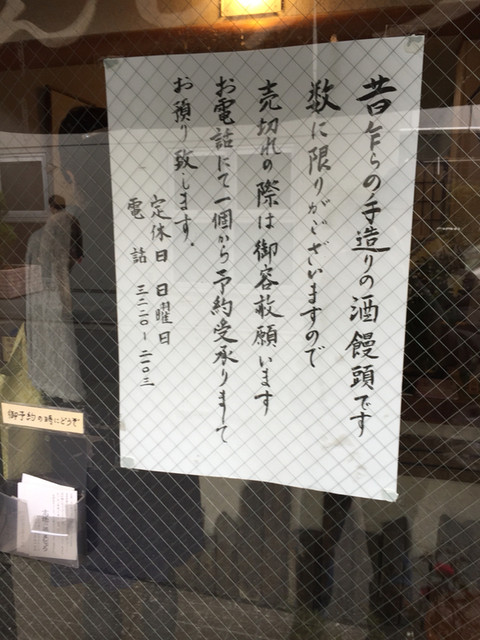 昔乍らの手造りの酒饅頭です
数に限りがございますので
売切れの際は御容赦願います
お電話にて一個から予約受承りまして
お預り致します。
定休日 日曜日
電話 三二二〇〜二二〇三
御予約の時にどうぞ